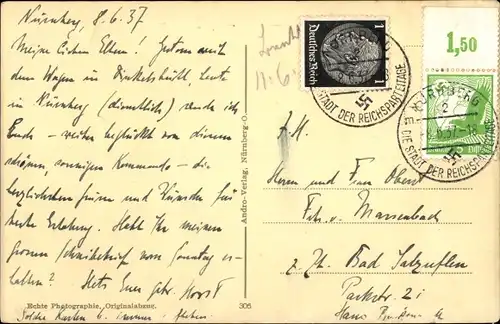 Nürnberg, 8.6.37
Meine lieben Eltern! Gestern mit
dem Wagen in Dinkelsbühl, heute
in Nürnberg (dienstlich) sende ich
Euch - weiter beglückt von diesem
schönen, sonnigen Kommando - die
herzlichsten Grüsse und Wünsche für
Erholung. Habt Ihr meinen
grossen Schreibebrief vom Sonntag er-
halten? Stets Euer Horst
Echte Photographie, Originalabzug.
306
Andro-Verlag, Nürnberg-O.
11.6.
1
Deutsches Reich
NÜRNBERG
STADT DER REICHSPARTEITAGE
1,50
NÜRNBERG
2
DIE STADT DER REICHSPARTEITAGE
Herrn und Frau Oberst
Frh. v. Massenbach
z. Zt. Bad Salzuflen
Parkstr. 2
Haus